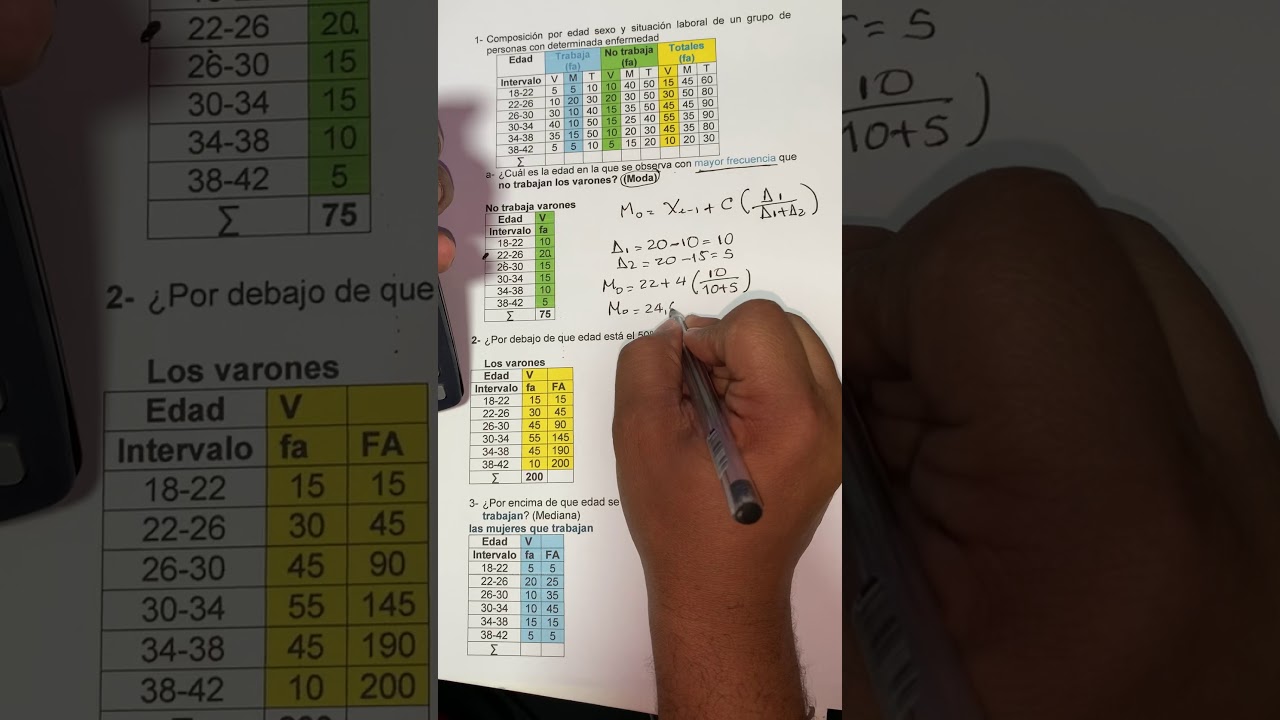 1- Composición por edad sexo y situación laboral de un grupo de
personas con determinada enfermedad
Edad Trabaja (fa) No trabaja (fa) Totales (fa)
Intervalo V M T V M T V M T
18-22 5 5 10 10 40 50 15 45 60
22-26 10 20 30 20 30 50 30 50 80
26-30 30 10 40 15 35 50 45 45 90
30-34 40 10 50 15 25 40 55 35 90
34-38 35 15 50 10 20 30 45 35 80
38-42 5 5 10 5 15 20 10 20 30
∑
a- ¿Cuál es la edad en la que se observa con mayor frecuencia que
no trabajan los varones? (Moda)
No trabaja varones
Edad V
Intervalo fa
18-22 10
22-26 20
26-30 15
30-34 15
34-38 10
38-42 5
∑ 75
Mo = Xi-1 + C (Δ1 / Δ1+Δ2)
Δ1 = 20-10 = 10
Δ2 = 20-15 = 5
Mo = 22 + 4 (10 / 10+5)
Mo = 24,6
2- ¿Por debajo de que edad está el 50%
Los varones
Edad V
Intervalo fa FA
18-22 15 15
22-26 30 45
26-30 45 90
30-34 55 145
34-38 45 190
38-42 10 200
∑ 200
3- ¿Por encima de que edad se
trabajan? (Mediana)
las mujeres que trabajan
Edad V
Intervalo fa FA
18-22 5 5
22-26 20 25
26-30 10 35
30-34 10 45
34-38 15 15
38-42 5 5
∑
22-26 20
26-30 15
30-34 15
34-38 10
38-42 5
∑ 75
2- ¿Por debajo de que
Los varones
Edad V
Intervalo fa FA
18-22 15 15
22-26 30 45
26-30 45 90
30-34 55 145
34-38 45 190
38-42 10 200
= 5
10
10+5 )